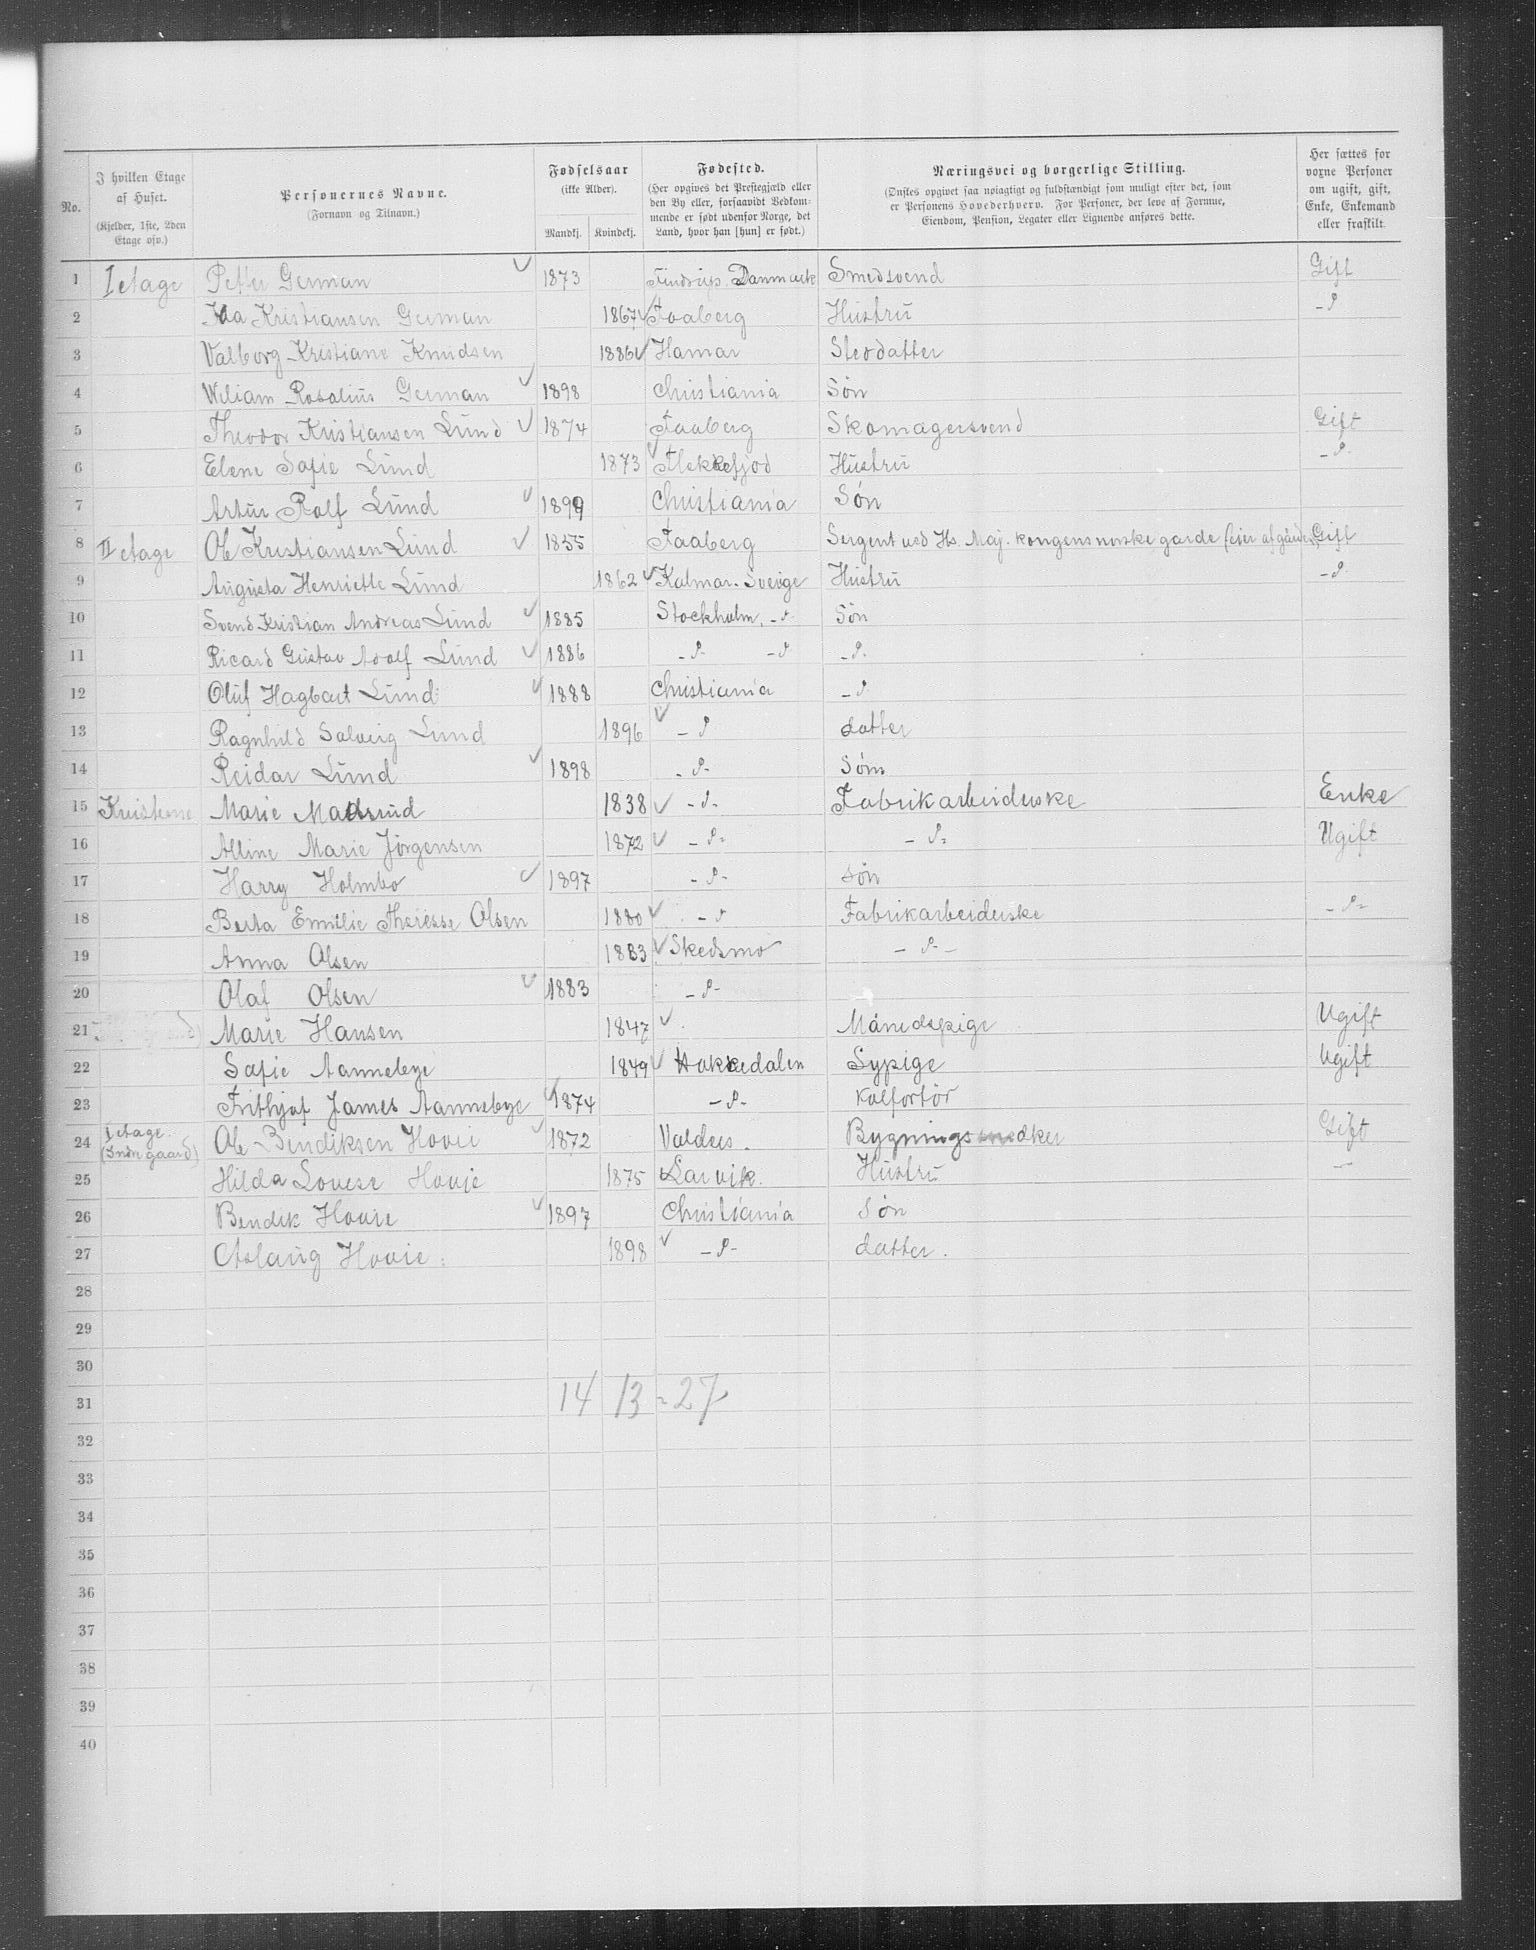 No.
I hvilken Etage af Huset.
(Kjelder, 1ste, 2den Etage osv.)
Personernes Navne.
(Fornavn og Tilnavn.)
Fødselsaar
(ikke Alder).
Mandkj. Kvindekj.
Fødested.
(Her opgives det Prestegjæld eller den By eller, forsaavidt Vedkommende er født udenfor Norge, det Land, hvor han [hun] er født.)
Næringsvei og borgerlige Stilling.
(Ønskes opgivet saa nøiagtigt og fuldstændigt som muligt efter det, som er Personens Hovederhverv. For Personer, der leve af Formue, Eiendom, Pension, Legater eller Lignende anføres dette.)
Her sættes for voxne Personer om ugift, gift, Enke, Enkemand eller fraskilt.
1 I etage Peter German 1873 Danmark Smedsvend Gift
2 Kristiansen German 1867 Faaberg Hustru -d
3 Valborg Kristiane Knudsen 1886 Hamar Stedatter
4 Wiliam Rosalius German 1898 Christiania Søn
5 Theodor Kristiansen Lund 1874 Faaberg Skomagersvend Gift
6 Elene Sofie Lund 1873 Flekkefjod Hustru -d.
7 Artur Ralf Lund 1899 Christiania Søn
8 II etage Ole Kristiansen Lund 1855 Faaberg Sergent ved Hs. Maj. kongens norske garde (eier af gården) Gift
9 Augusta Henriette Lund 1862 Kalmar. Sverige Hustru -d.
10 Svend Kristian Andreas Lund 1885 Stockholm, -d. Søn
11 Ricard Gustav Adolf Lund 1886 -d- -d -d.
12 Oluf Hagbart Lund 1888 Christiania -d
13 Ragnhild Solveig Lund 1896 -d datter
14 Reidar Lund 1898 -d- Søn
15 Kvisterne Marie Madsrud 1838 -d- Fabrikarbeiderske Enke
16 Alline Marie Jørgensen 1872 -d- -d- Ugift
17 Harry Holmbo 1897 -d- Søn
18 Berta Emilie Theresse Olsen 1880 -d Fabrikarbeiderske -d-
19 Anna Olsen 1883 Skedsmo -d-
20 Olaf Olsen 1883 -d-
21 Marie Hansen 1847 Månedspige Ugift
22 Sofie Aannebye 1849 Hakkedalen Sypige Ugift
23 Frithjof James Aannebye 1874 -d- Kolfortør
24 I etage. (Indn gaard) Ole Bendiksen Hovie 1872 Valders. Bygningsnedker Gift
25 Hilda Lovise Hovie 1875 Larvik. Hustru —
26 Bendik Hovie 1897 Christiania Søn
27 Aslaug Hovie. 1898 -d- datter.
28
29
30
31 14 13 = 27
32
33
34
35
36
37
38
39
40